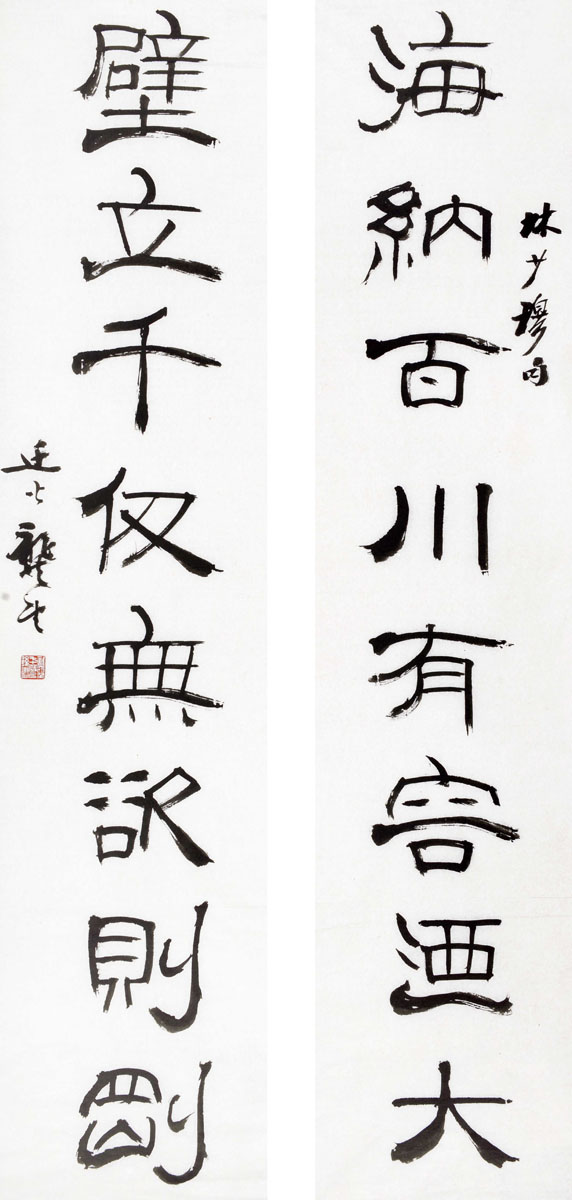 海納百川有容迺大
林少穆句
壁立千仞無欲則剛
龔望